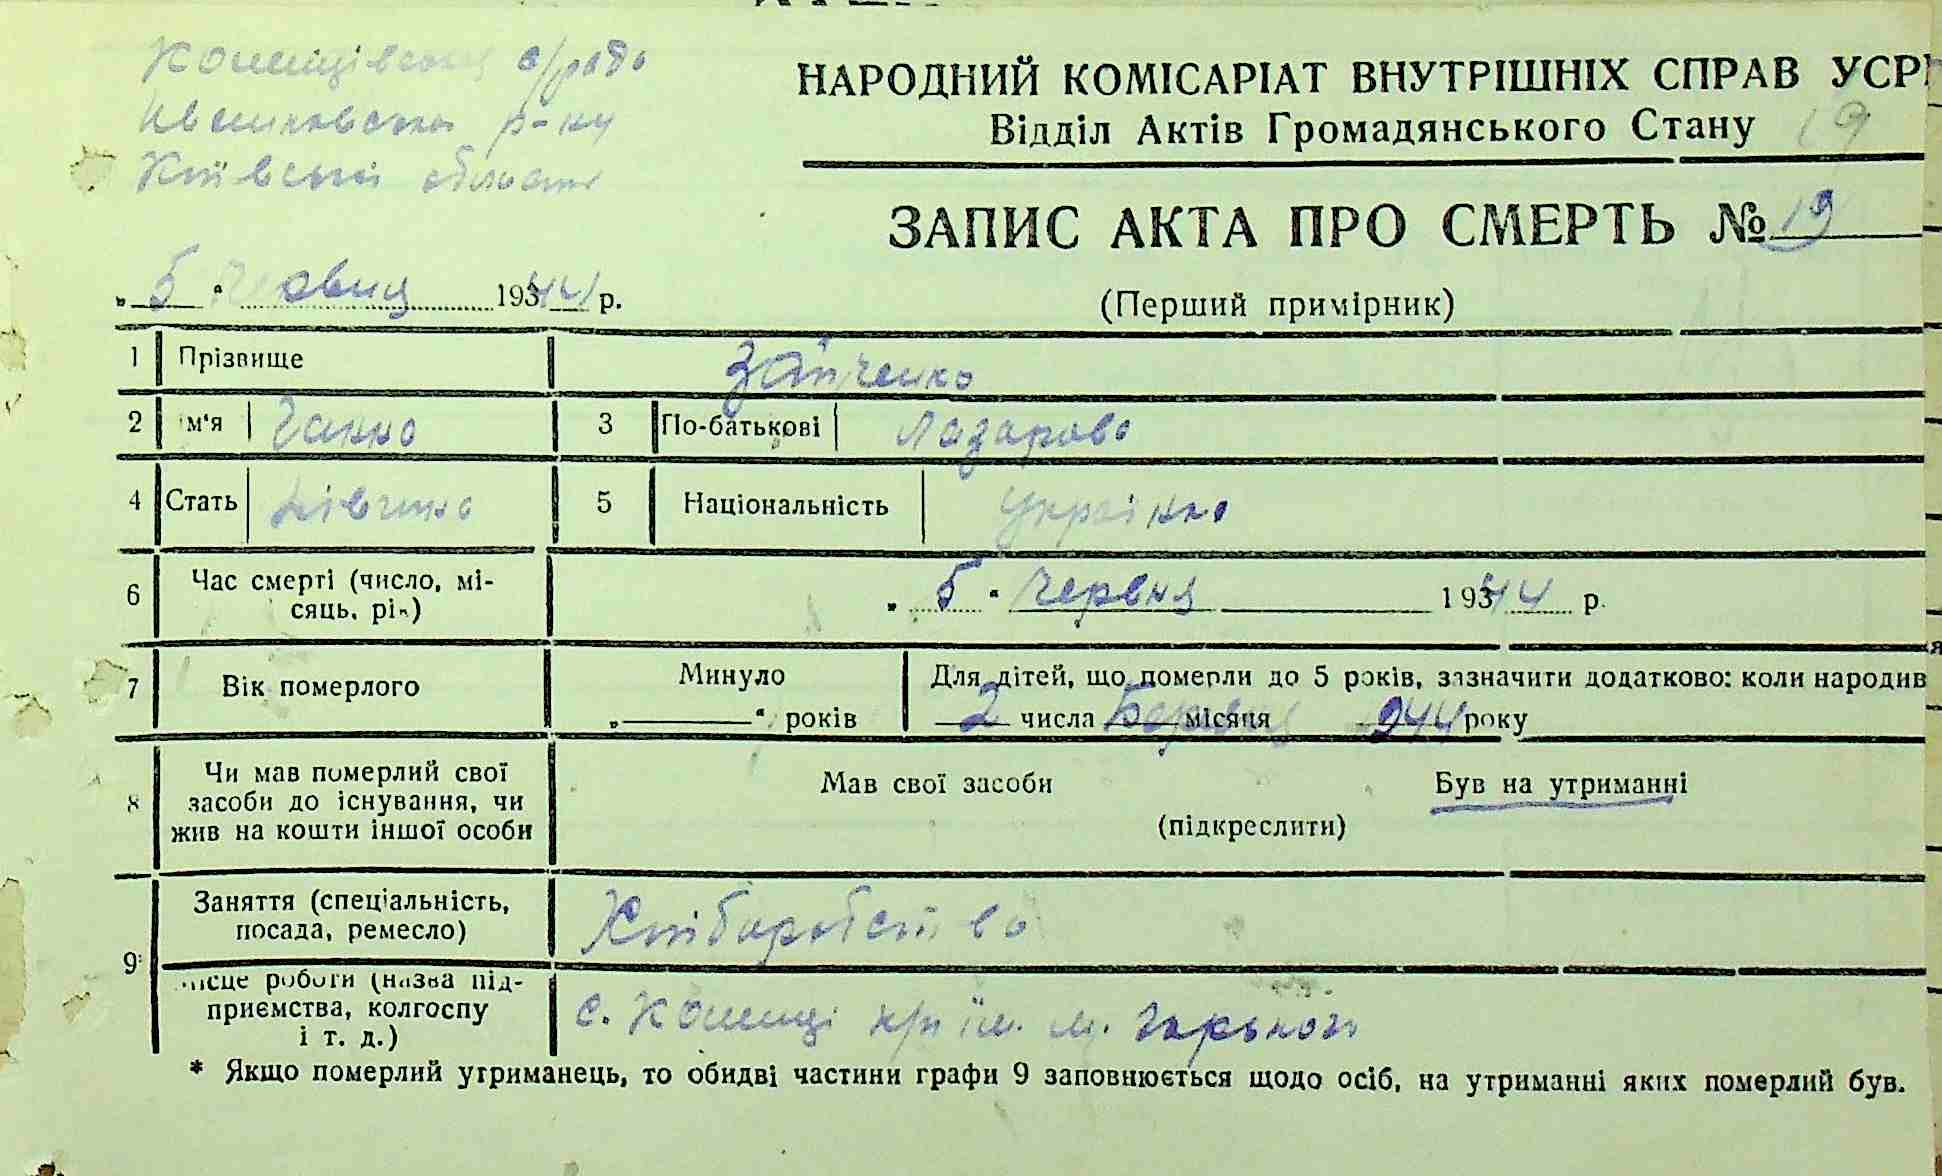 с/рада
р-ну
Київської області
НАРОДНИЙ КОМІСАРІАТ ВНУТРІШНІХ СПРАВ УСРР
Відділ Актів Громадянського Стану 19
ЗАПИС АКТА ПРО СМЕРТЬ № 19
(Перший примірник)
„ 5 “ червня 1944 р.
1 Прізвище Зайченко
2 Ім'я Ганна 3 По-батькові Лазарова
4 Стать дівчина 5 Національність Українка
6 Час смерті (число, мі-
сяць, рік) „ 5 “ червня 1944 р.
7 Вік померлого Минуло Для дітей, що померли до 5 років, зазначити додатково: коли народив
„ “ років 2 числа місяця 1944 року
8 Чи мав померлий свої
засоби до існування, чи
жив на кошти іншої особи
Мав свої засоби Був на утриманні
(підкреслити)
9* Заняття (спеціальність,
посада, ремесло) Хліборобство
Місце роботи (назва під-
приємства, колгоспу
і т. д.)
с. ім. М. Горького
* Якщо померлий утриманець, то обидві частини графи 9 заповнюється щодо осіб, на утриманні яких померлий був.